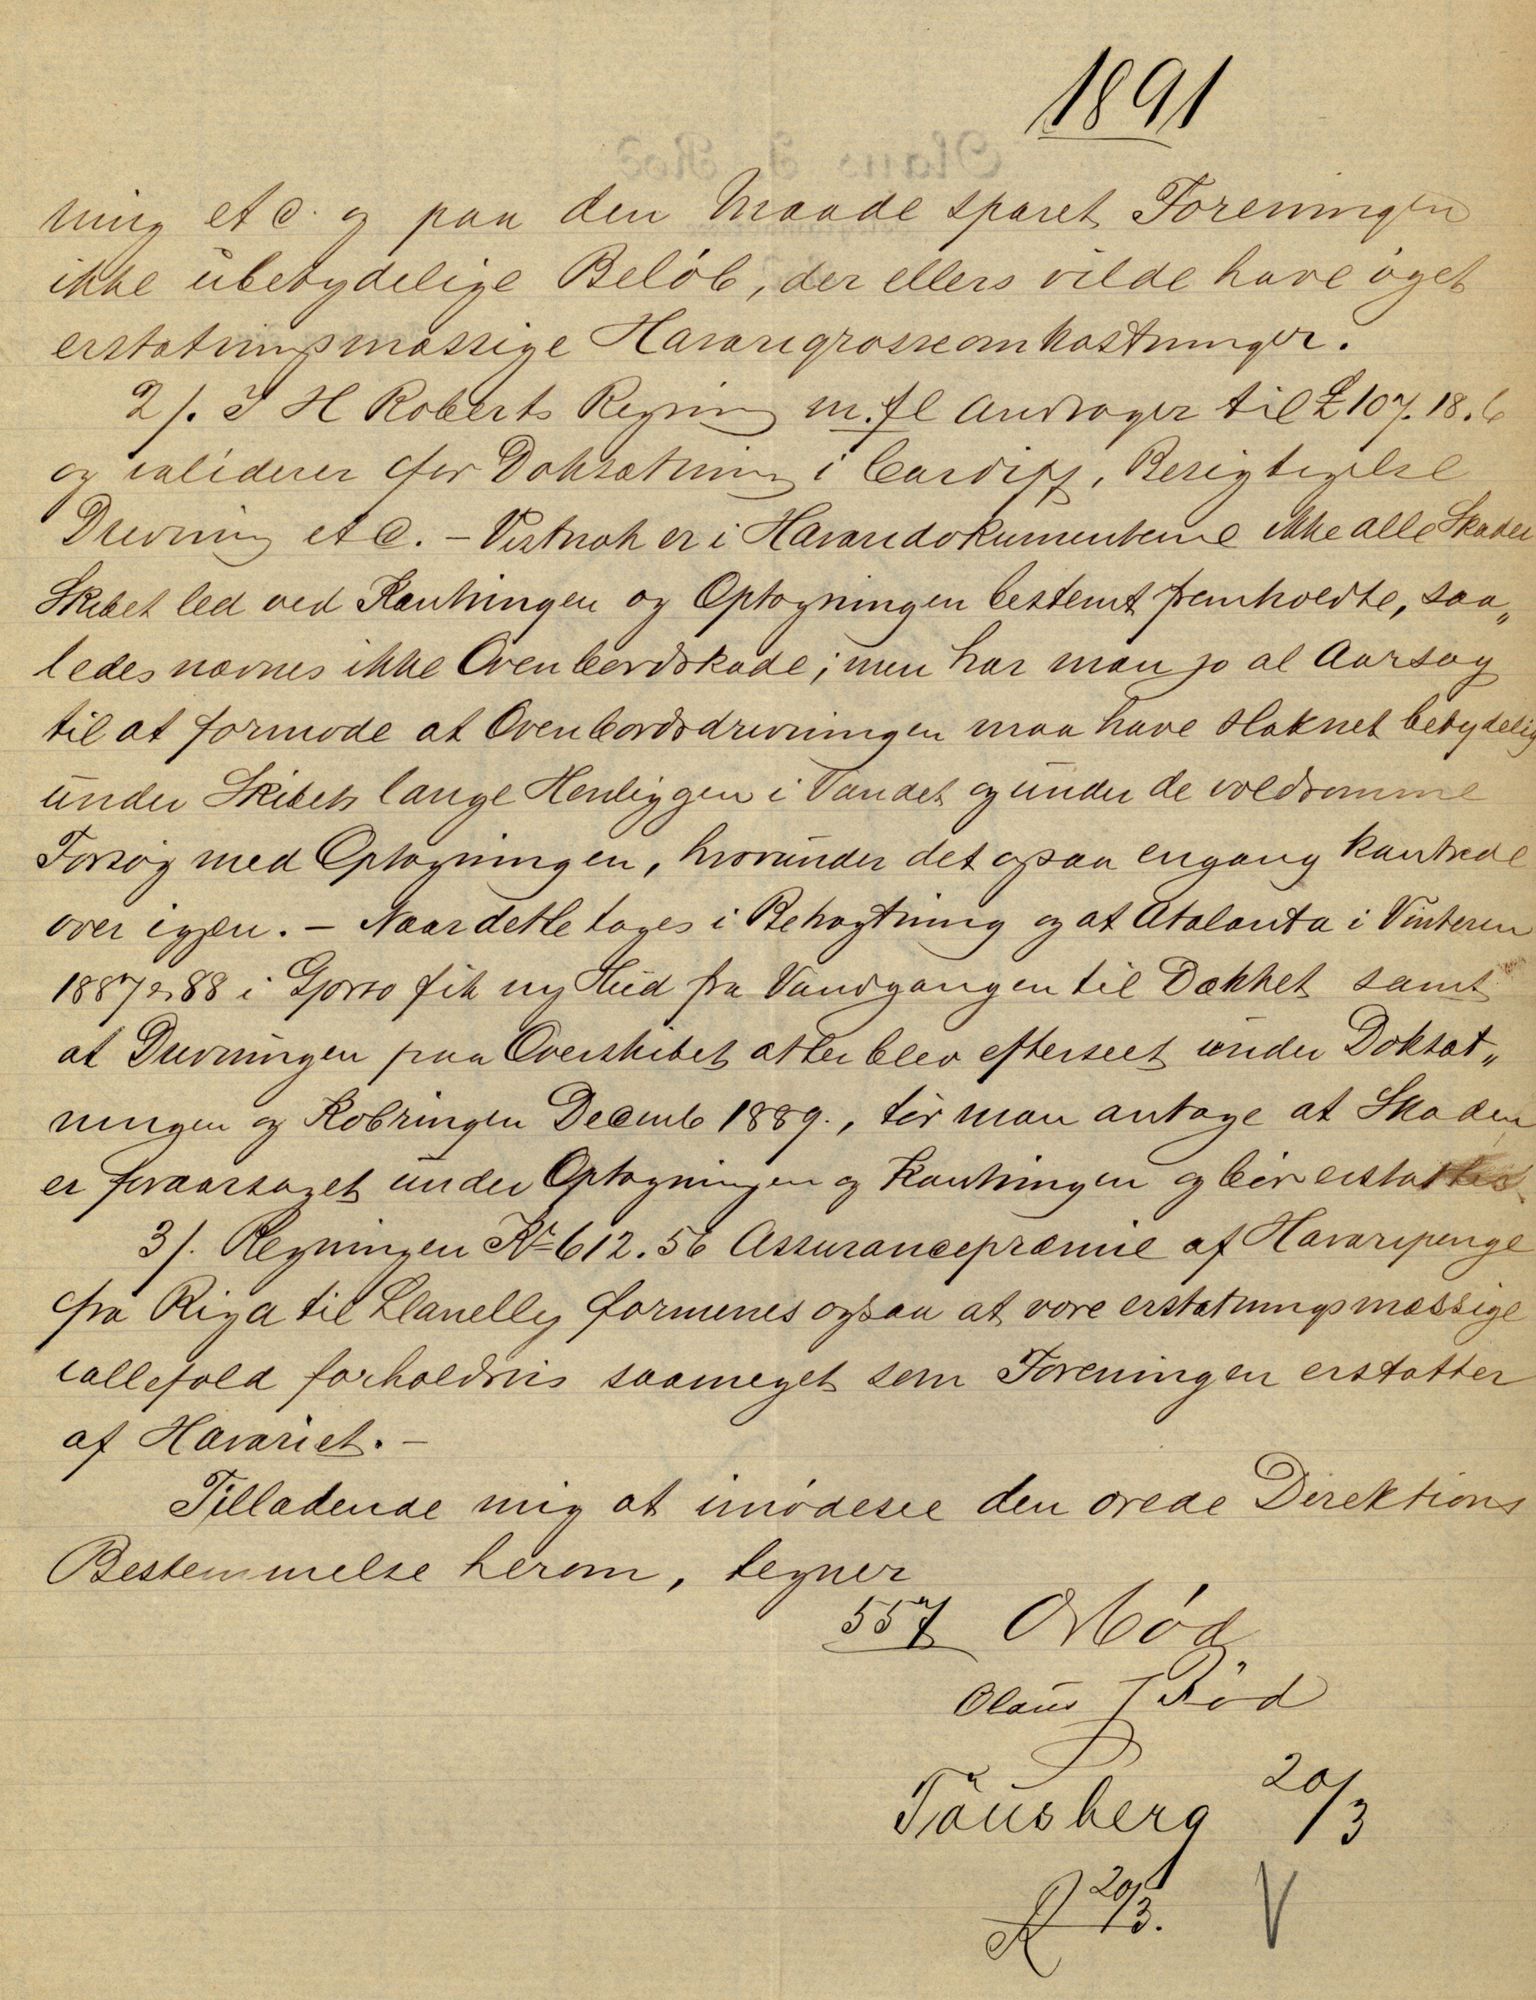 1891
ning etc. og paa den Maade sparet Foreningen
ikke ubetydelige Beløb, der ellers vilde have øget
erstatningsmæssige Havarigrosseomkostninger.
2/. J H Roberts Regning m.fl andrager til £107.18.6
og validerer for Doksætning i Cardiff, Besigtigelse
Drivning etc. – Vistnok er i Havaridokumenterne ikke alle Skader
Skibet led ved Kæntringen og Optagningen bestemt fremholdte, saa„
ledes nævnes ikke Ovenbordskade; men har man jo al Aarsag
til at formode at Ovenbordsdrivningen maa have slaknet betydelig
under Skibets lange Henliggen i Vandet og under de voldsomme
Forsøg med Optagningen, hvorunder det ogsaa engang kæntrede
over igjen. – Naar dette tages i Betragtning og at Atalanta i Vinteren
1887 88 i fik ny Hud fra Vandgangen til Dækket samt
at Drivningen paa Overskibet atter blev efterseet under Doksæt„
ningen og Kobringen Decemb 1889., tør man antage at Skaden
er foraarsaget under Optagningen og Kæntringen og bør erstattes.
3/. Regningen Kr 612.56 Assurancepræmie af Havaripenge
fra Riga til Llanelly formenes ogsaa at være erstatningsmæssige
iallefald forholdsvis saameget som Foreningen erstatter
af Havariet. –
Tilladende mig at imødesee den ærede Direktions
Bestemmelse herom, tegner
557 Mød
Olaus J Rød
Tønsberg 20/3
20/3. V